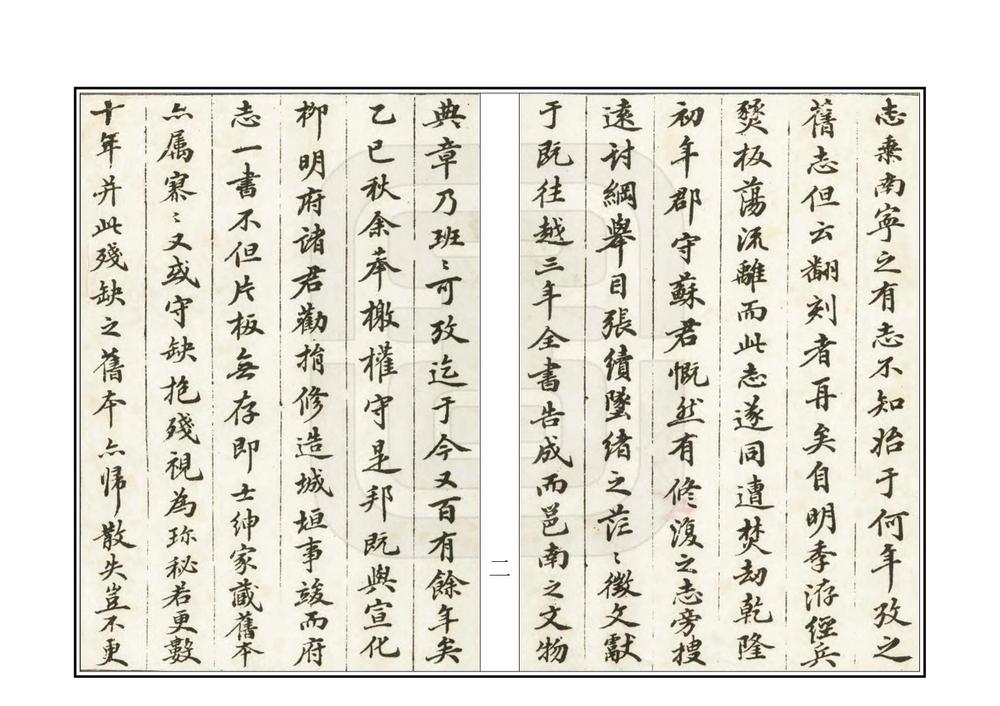 志乗南寧之有志不知始于何年攷之
舊志但云翻刻者再矣自明季洊經兵
燹板蕩流離而此志遂同遭焚劫乾隆
初年郡守蘇君慨然有修復之志旁搜
遠討綱舉目張續墜緒之茫〻徵文獻
于既往越三年全書告成而邕南之文物
二
典章乃班〻可攷迄于今又百有餘年矣
乙巳秋余奉檄權守是邦既與宣化
柳明府諸君勸捐修造城垣事竣而府
志一書不但片板無存即士紳家藏舊本
亦属寥〻又或守缺抱殘視為珎秘若更數
十年并此殘缺之舊本亦歸散失豈不更